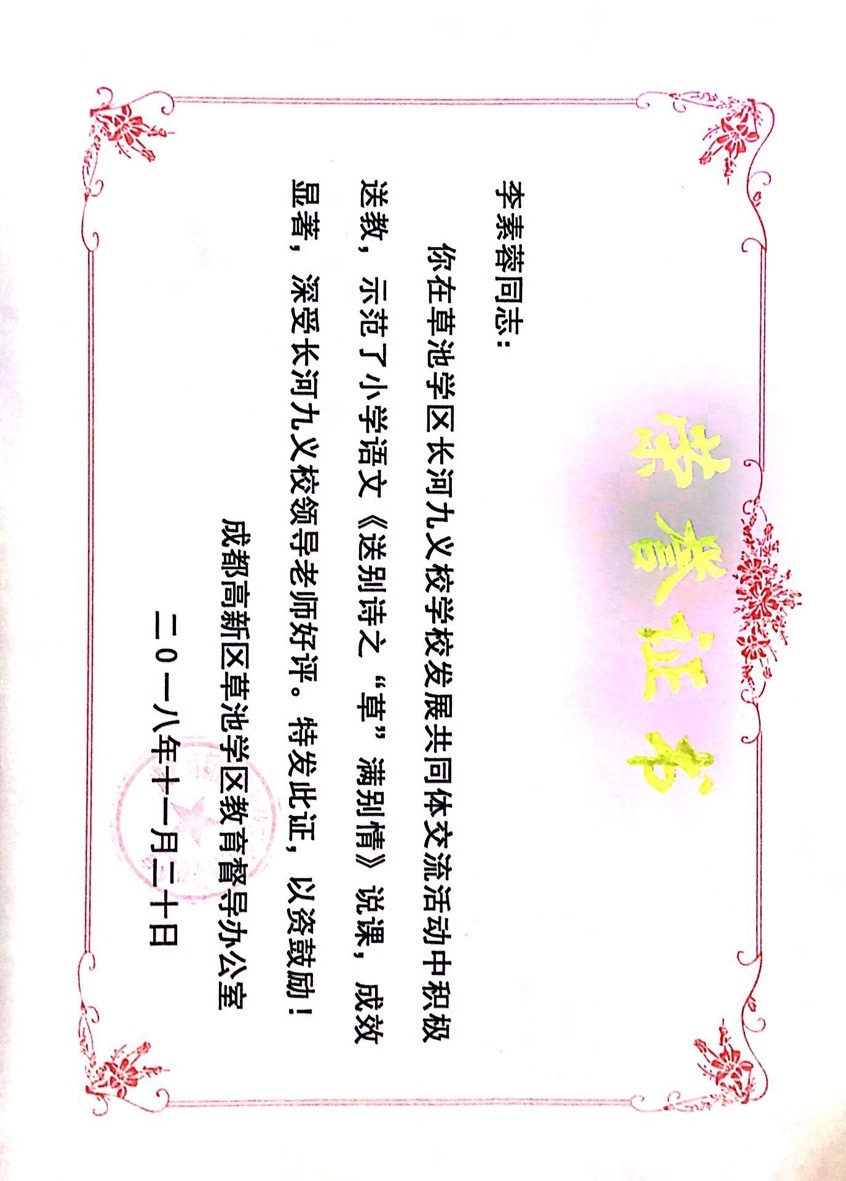 荣誉证书
李素蓉同志：
你在草池学区长河九义校学校发展共同体交流活动中积极
送教，示范了小学语文《送别诗之“草”满别情》说课，成效
显著，深受长河九义校领导老师好评。特发此证，以资鼓励！
成都高新区草池学区教育督导办公室
二0一八年十一月二十日